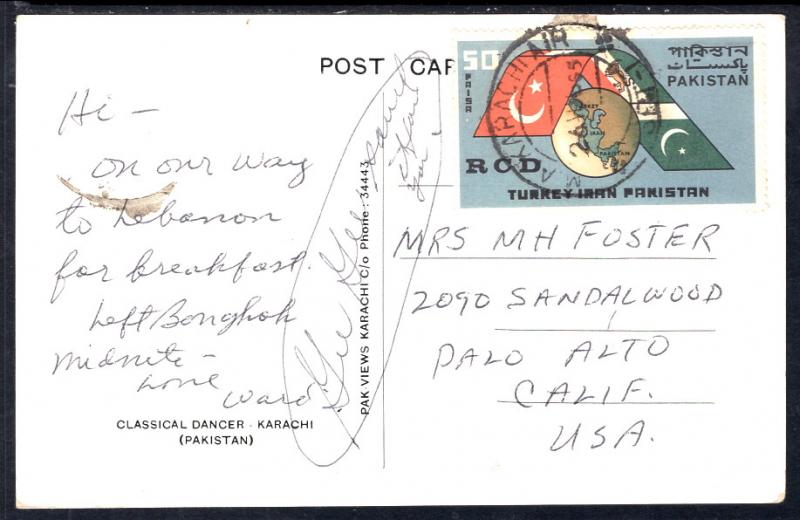 POST CAR
50
PAISA
পাকিস্তান
پاکستان
PAKISTAN
TURKEY
IRAN
PAKISTAN
RCD
TURKEY IRAN PAKISTAN
KARACHI AIR
65
Hi -
on our way
to Lebanon
for breakfast.
Left Bongkok
midnite -
love
Ward
CLASSICAL DANCER - KARACHI
(PAKISTAN)
PAK-VIEWS KARACHI C/o Phone: 34443
MRS MH FOSTER
2090 SANDALWOOD
PALO ALTO
CALIF.
USA.